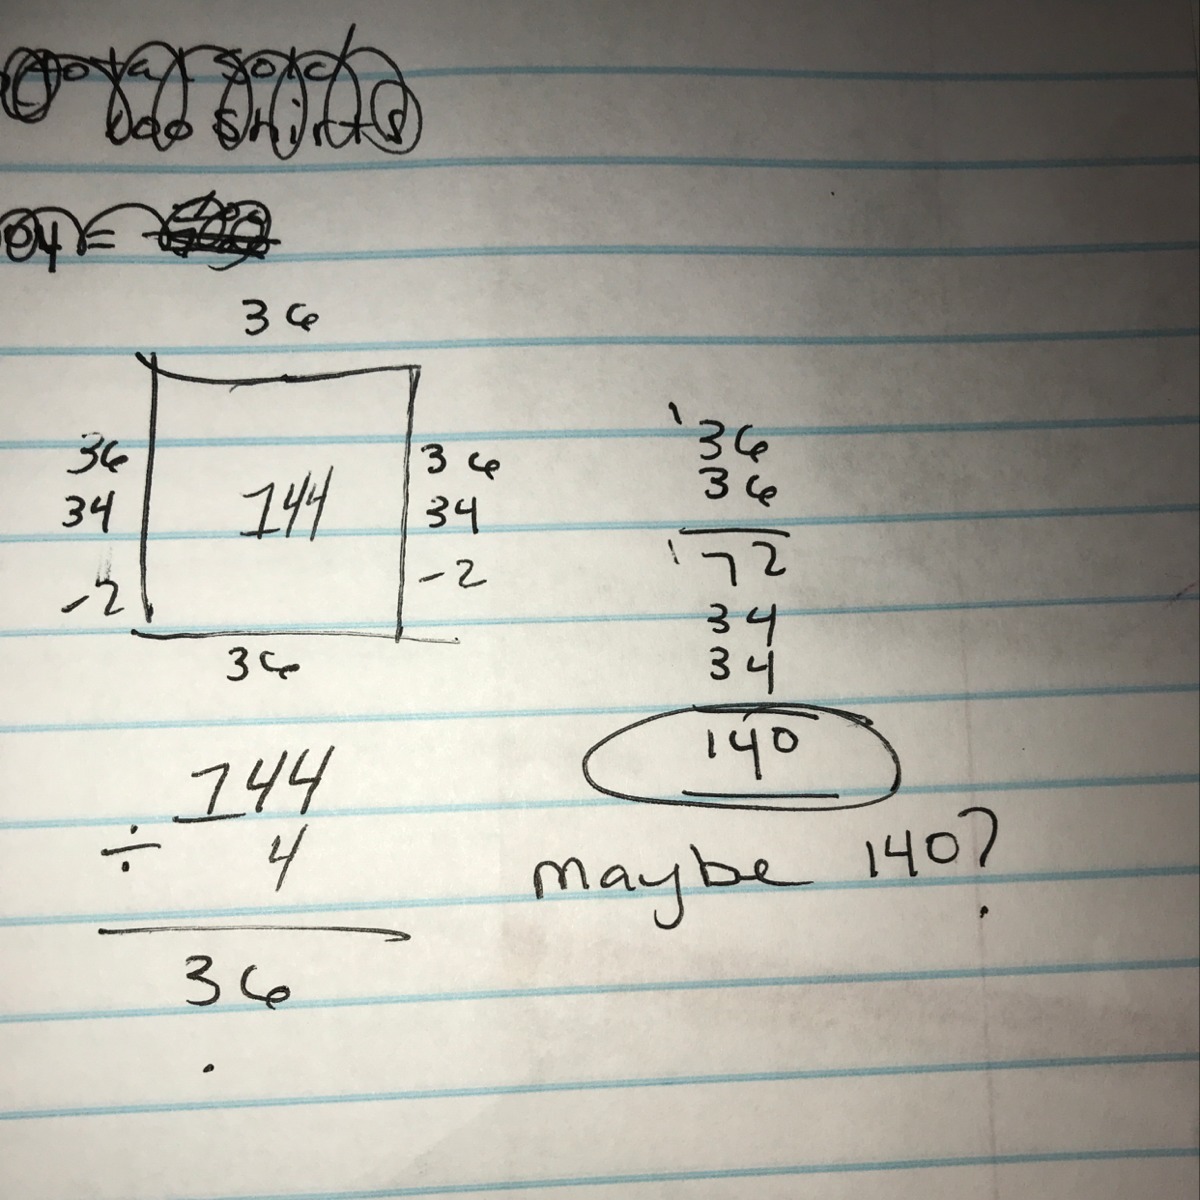 total sold
too shirts
04 =
36
36
34
-2
144
36
34
-2
36
144
÷ 4
36
.
1
36
36
1 72
34
34
140
maybe 140?